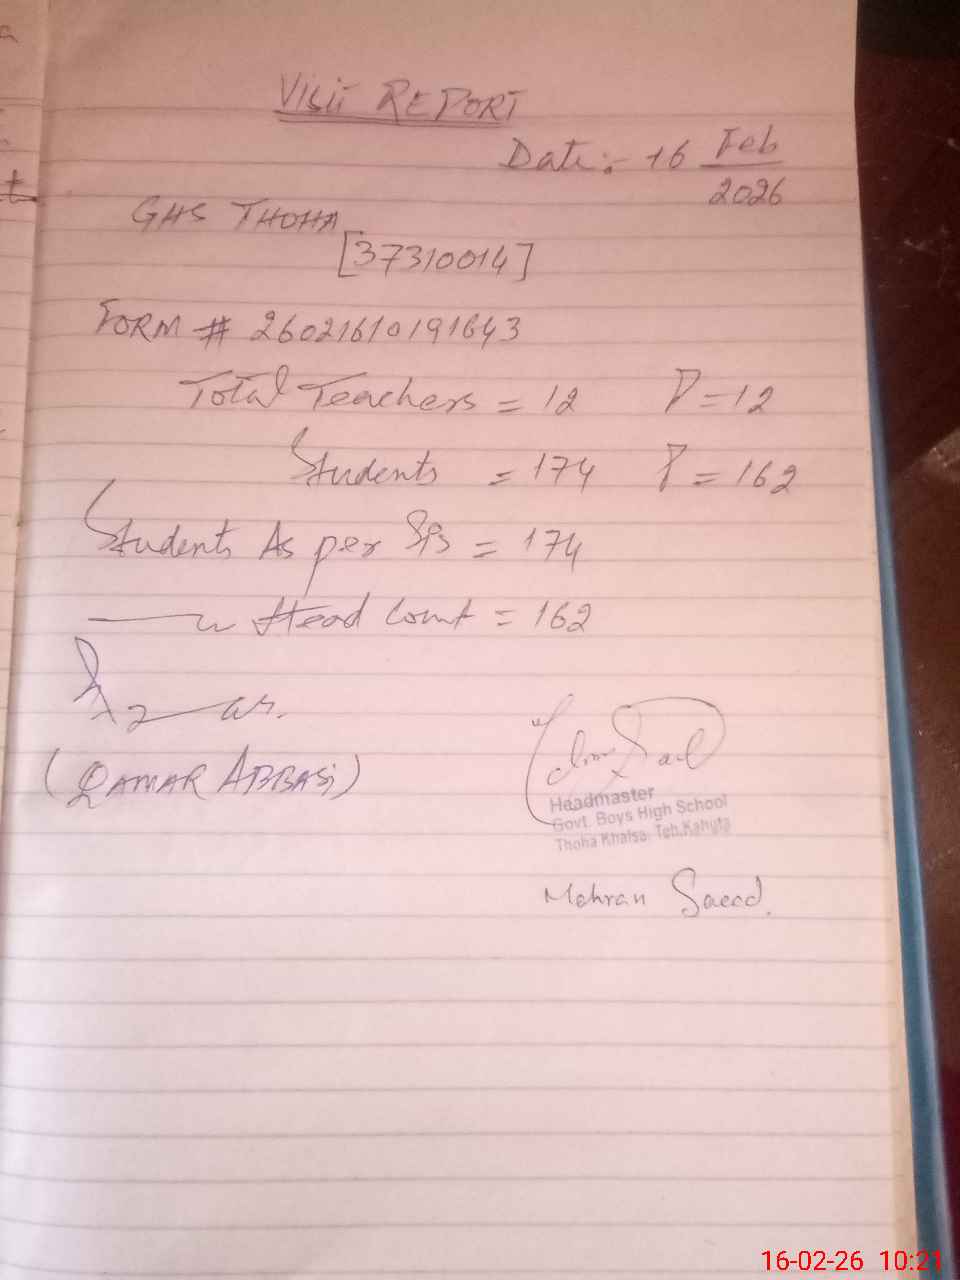 VISIT REPORT
Date:- 16 Feb
2026
GHS THOHA
[37310014]
FORM # 26021610191643
Total Teachers = 12 P = 12
Students = 174 P = 162
Students As per SIS = 174
Head Count = 162
(QAMAR ABBASI)
Headmaster
Govt. Boys High School
Thoha Khalsa, Teh. Kahuta
Mehran Saeed.
16-02-26 10:21